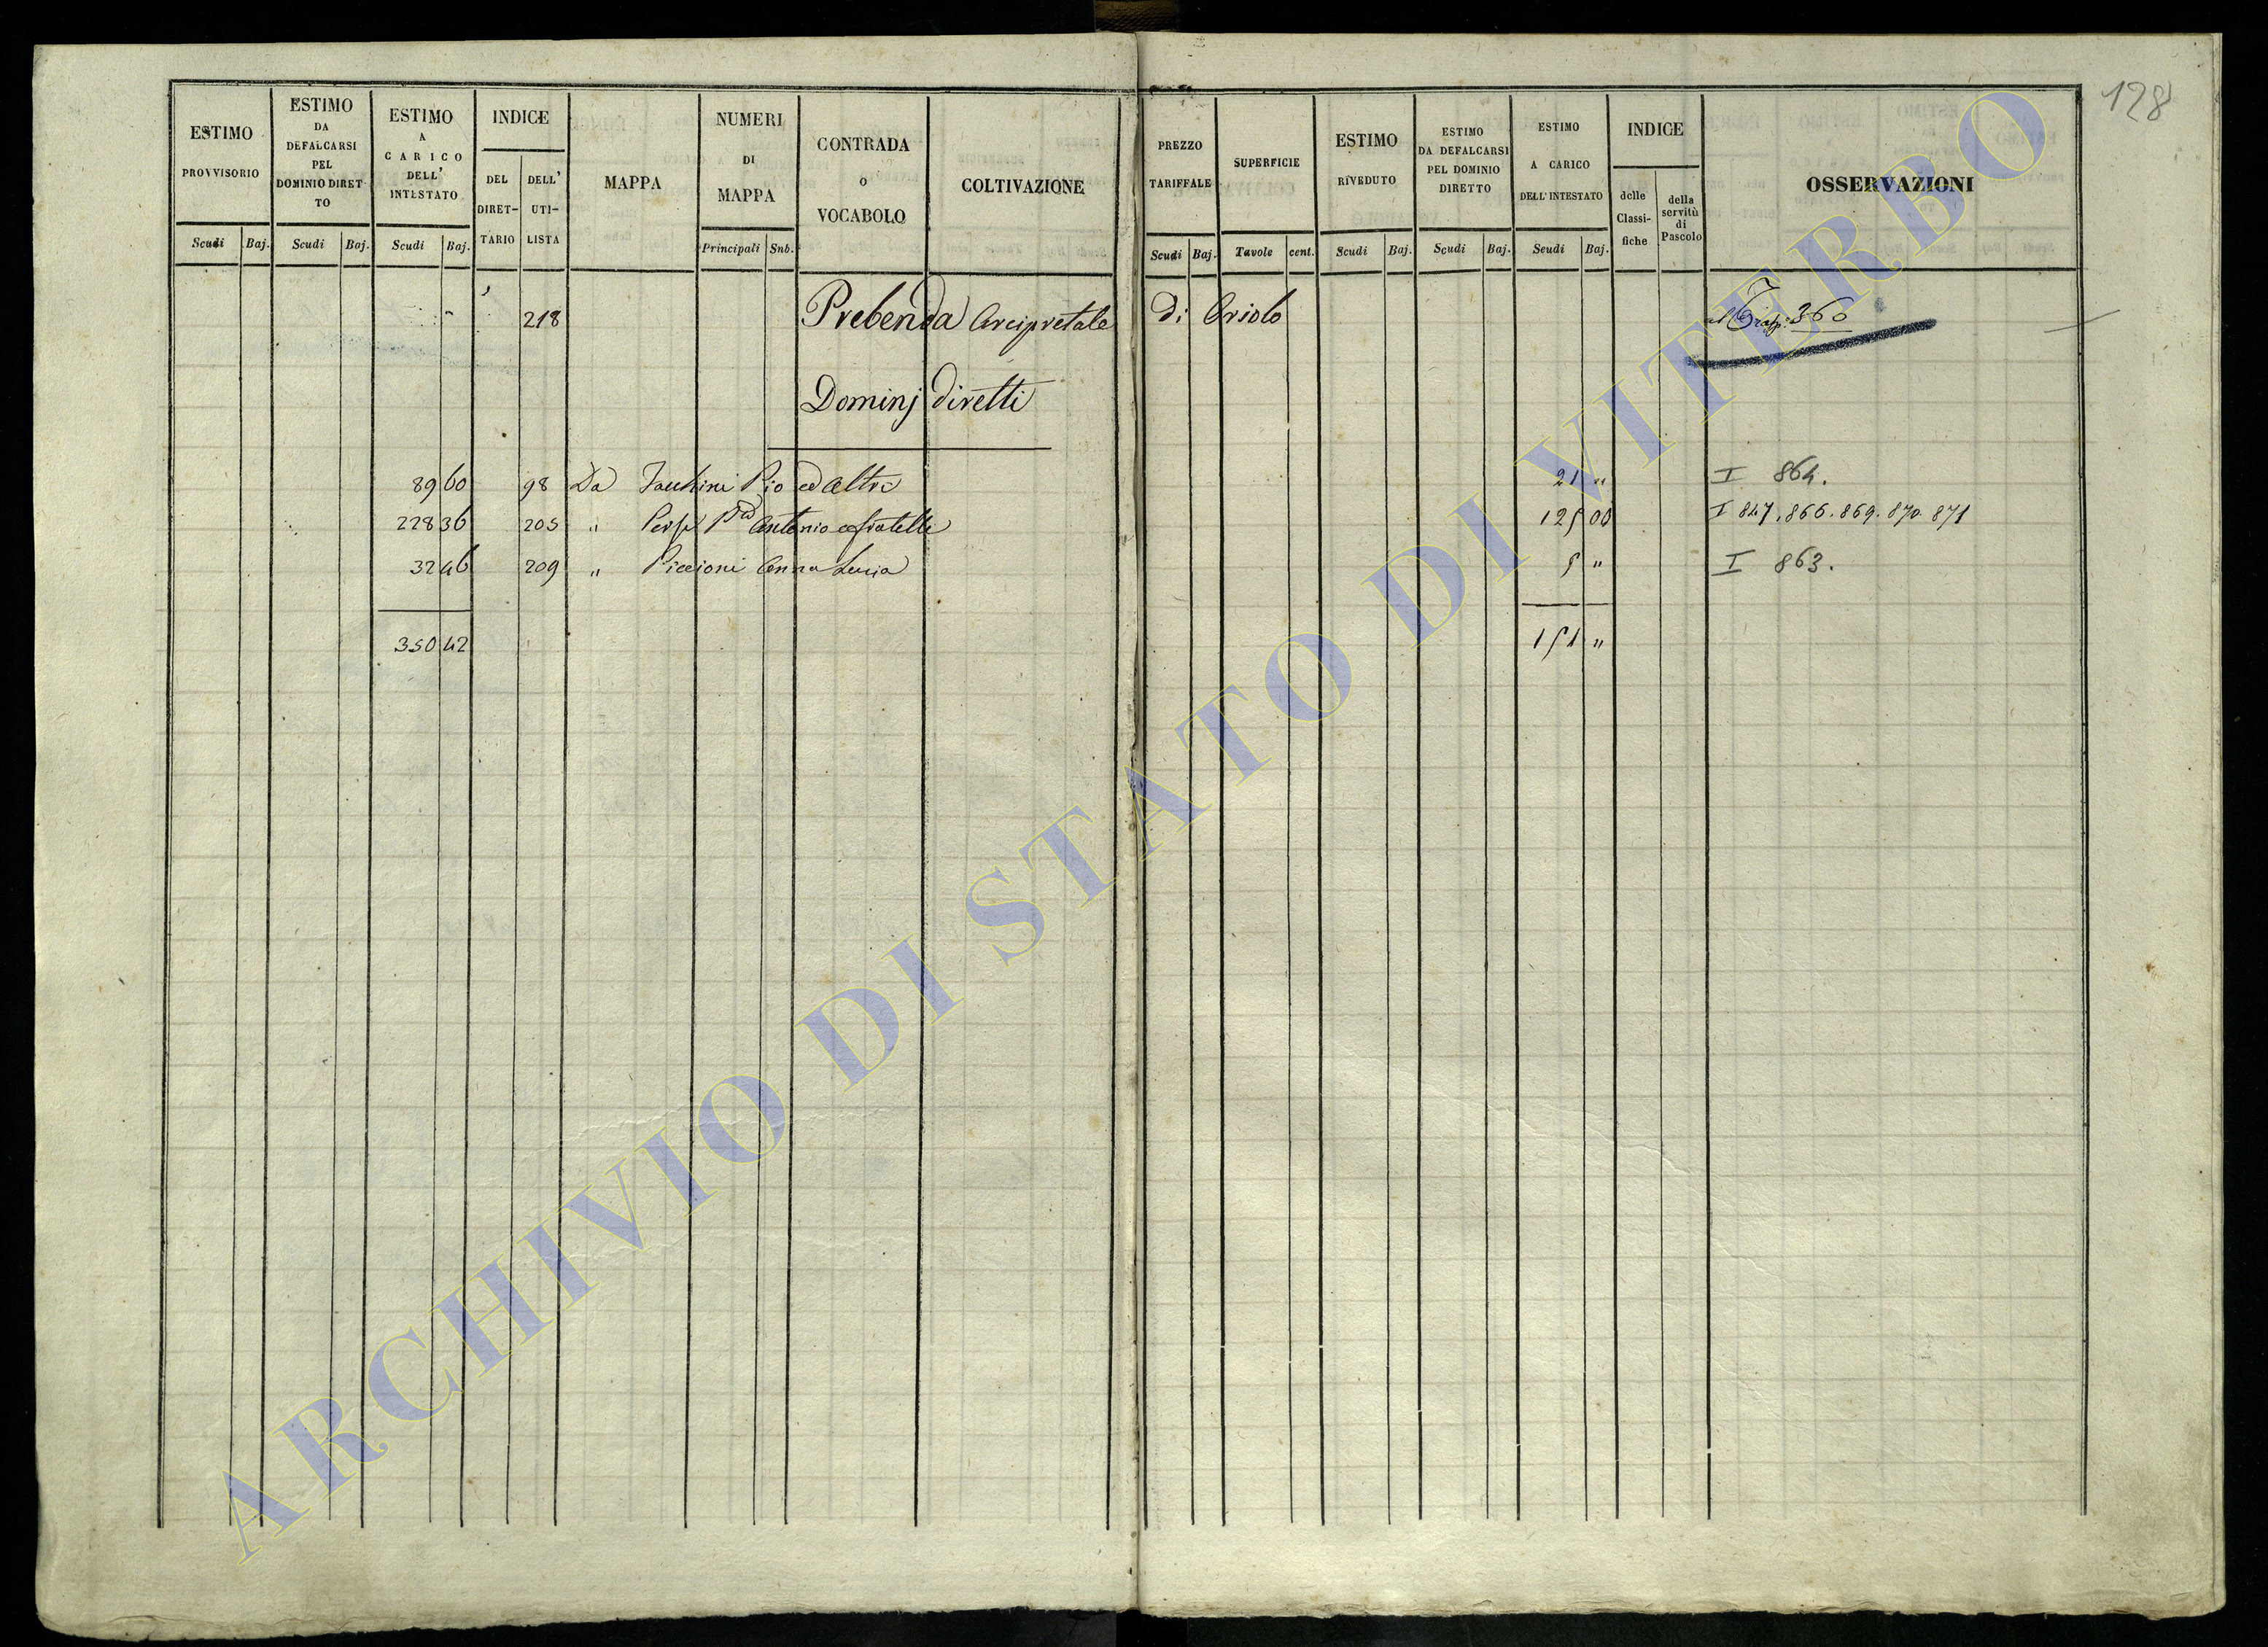 128
ESTIMO PROVVISORIO Scudi Baj.
ESTIMO DA DEFALCARSI PEL DOMINIO DIRETTO Scudi Baj.
ESTIMO A CARICO DELL' INTESTATO Scudi Baj.
INDICE DEL DIRETTARIO DELL' UTILISTA
MAPPA
NUMERI DI MAPPA Principali Sub.
CONTRADA o VOCABOLO
COLTIVAZIONE
PREZZO TARIFFALE Scudi Baj.
SUPERFICIE Tavole cent.
ESTIMO RIVEDUTO Scudi Baj.
ESTIMO DA DEFALCARSI PEL DOMINIO DIRETTO Scudi Baj.
ESTIMO A CARICO DELL' INTESTATO Scudi Baj.
INDICE delle Classifiche della servitù di Pascolo
OSSERVAZIONI
218 Prebenda Arcipretale di Oriolo 360
Dominj diretti
89 60 98 Da Pio ed altri 21 " I 864.
228 36 205 " Antonio e fratelli 125 00 I 847. 866. 869. 870. 871
32 46 209 " Piccioni Anna Lucia 5 " I 863.
350 42 151 "
ARCHIVIO DI STATO DI VITERBO